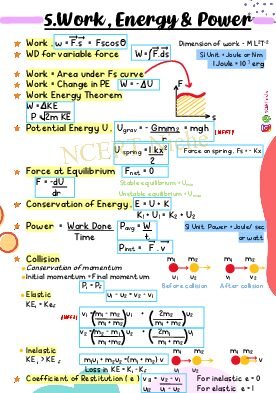 5.Work, Energy & Power
Work. W = F.s = Fscosθ
Dimension of work - ML²T⁻²
WD for variable force W = ∫F.ds
SI Unit = Joule or Nm
1 Joule = 10⁷ erg
Work = Area under Fs curve
Work = Change in PE W = -ΔU
Work Energy Theorem
W = ΔKE
P = √2m KE
F
s
Potential Energy U. Ugrav = - Gmm₂ = mgh
U spring = 1 kx²
2
Force on spring. Fs = - Kx
Force at Equilibrium Fnet = 0
F = -dU
dr
Stable equilibrium = Umin
Unstable equilibrium = Umax
Conservation of Energy. E = U + K
K₁ + U₁ = K₂ + U₂
Power = Work Done
Time
Pavg = W
t
Pinst = F . v
SI Unit Power = Joule/sec
or watt
Collision
Conservation of momentum
Initial momentum = Final momentum
Pi = Pf
m₁ m₂ m₁ m₂
u₁ u₂ v₁ v₂
Before collision After collision
Elastic
KEi = KEf
u₁ - u₂ = v₂ - v₁
Inelastic
KEi > KEf
m₁u₁ + m₂u₂ = (m₁ + m₂) v
Loss in KE = Ki - Kf
m₁ m₂
u₁ u₂ v
Coefficient of Restitution (e)
v₂ - v₁
u₁ - u₂
For inelastic e = 0
For elastic e = 1